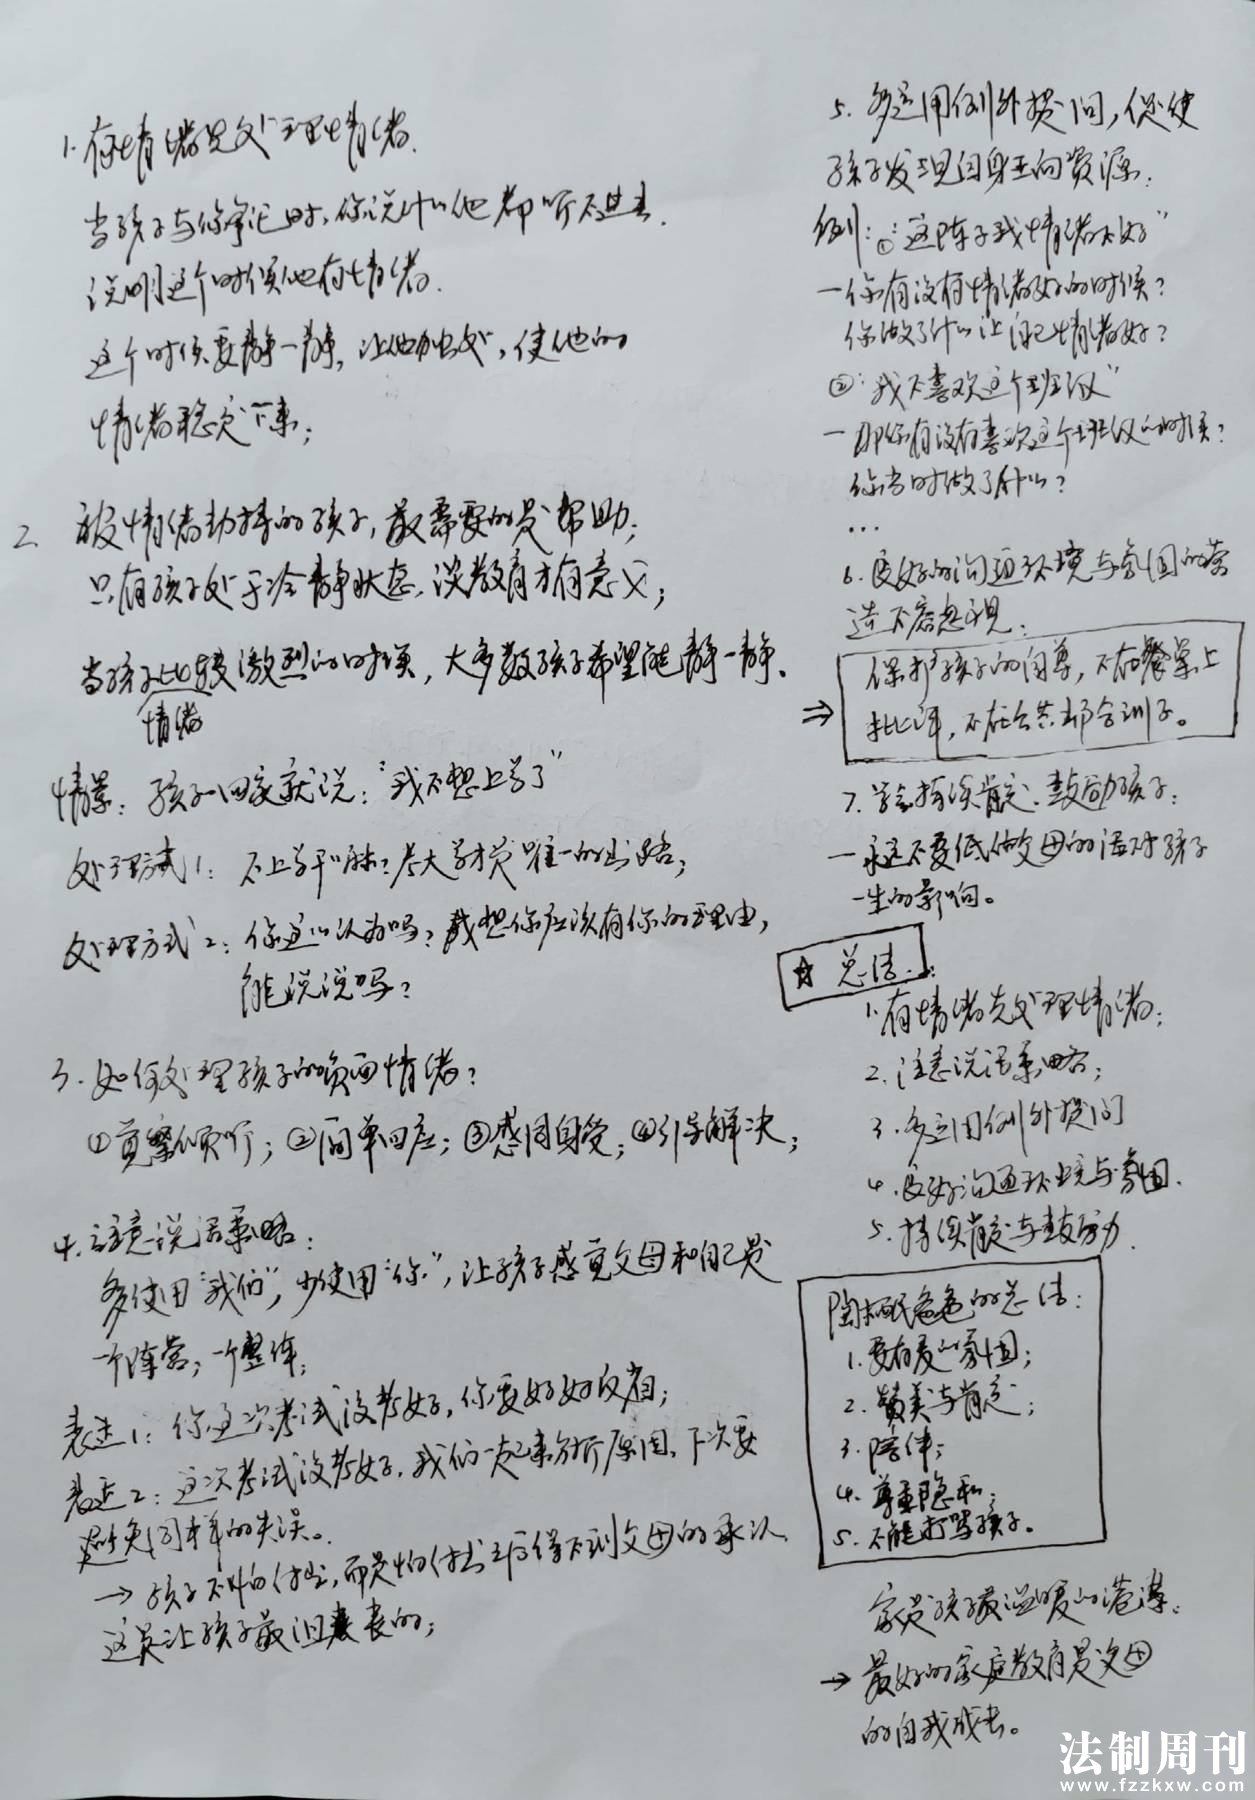 1.有情绪先处理情绪.
当孩子与你争论时,你说什么他都听不进去.
说明这个时候他有情绪.
这个时候要静一静,让他独处,使他的
情绪稳定下来;
2. 被情绪劫持的孩子,最需要的是帮助;
只有孩子处于冷静状态,谈教育才有意义;
当孩子情绪比较激烈的时候,大多数孩子希望能静一静.
情景:孩子一回家就说:“我不想上学了”
处理方式1:不上学干嘛?考大学才是唯一的出路;
处理方式2:你这么认为吗?我想你应该有你的理由,
能说说吗?
3.如何处理孩子的负面情绪?
①觉察倾听;②简单回应;③感同身受;④引导解决;
4.注意说话策略:
多使用“我们”,少使用“你”,让孩子感觉父母和自己是
一个阵营,一个整体;
表述1:你这次考试没考好,你要好好反省;
表述2:这次考试没考好,我们一起来分析原因,下次要
避免同样的失误。
→孩子不怕付出,而是怕付出之后得不到父母的承认,
这是让孩子最沮丧的;
5.多运用例外提问,促使
孩子发现自身正向资源.
例:①:“这阵子我情绪不好”
—你有没有情绪好的时候?
你做了什么让自己情绪好?
②:“我不喜欢这个班级”
—那你有没有喜欢这个班级的时候?
你当时做了什么?
...
6.良好的沟通环境与氛围的营
造不容忽视:
⇒ 保护孩子的自尊,不在餐桌上
批评,不在公共场合训子。
7.学会持续肯定、鼓励孩子:
—永远不要低估父母的话对孩子
一生的影响。
☆ 总结:
1.有情绪先处理情绪;
2.注意说话策略;
3.多运用例外提问
4.良好沟通环境与氛围.
5.持续肯定与鼓励.
爸爸的总结:
1.要有爱的氛围;
2.赞美与肯定;
3.陪伴;
4.尊重隐私;
5.不能打骂孩子。
家是孩子最温暖的港湾;
→最好的家庭教育是父母
的自我成长。
法制周刊
www.fzzkxw.com